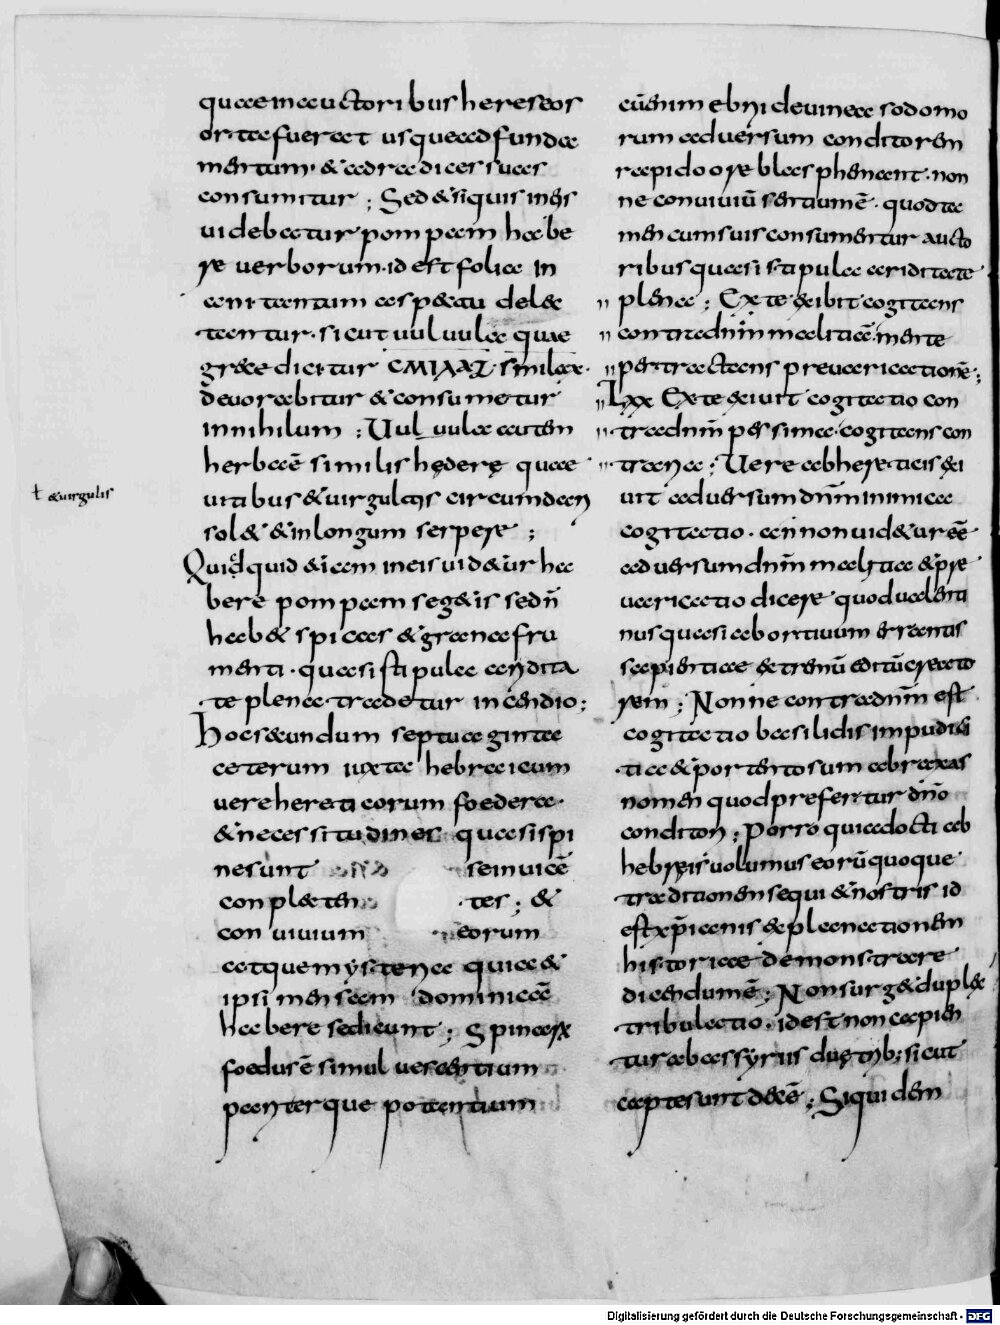 quae in auctoribus hereseos
orta fuerat usque ad funda
mentum · & ad radices suas
consumitur ; Sed & siquis in eis
uidebatur pompam habe
re uerborum · id est folia in
arii tantum aspectu dele
tentur · sicut uuluula quae
grece dicitur CMIΛAΞ · smilax ·
deuorabitur & consumetur
in nihilum ; Uuluula autem
herbaē similis hęderę quae
uitibus & uirgultis circumdari
sol& & in longum serpere ;
Quidquid & iam in eis uid&ur ha
bere pompam seg&is sed n̄
hab& spicas & grana fru
menti · quasi stipula arida
te plena trad&ur incendio ;
Hoc s&undum septuaginta
ceterum iuxta hebraicum
uere hereticorum foedera ·
& necessitudines quasi spi
ne sunt se inuicē
conplecten tes ; &
conuiuium eorum
atque mysteria quia &
ipsi mensam dominicaē
habere se dicunt ; Spinarū
foedus ē simul uescentium
pariterque potantium
ł & uirgulis
cū enim ebrii de uinea sodomo
rum aduersum conditorem
rapido ore blasphemant · non
ne conuiuiū sentiumē · quod ta
men cum suis consumentur aucto
ribus quasi stipula ariditate
plena ; Ex te exibit cogitans
contra dn̄m malitiaē · mente
pertractans preuaricationē ;
Lxx Ex te exiuit cogitatio con
tra dn̄m pessima · cogitans con
traria ; Uere ab hereticis exi
uit aduersum dn̄m inimica
cogitatio · an non uid&ur eē
aduersum dn̄m malitia & pre
uaricatio dicere quod ualenti
nus quasi abortiuum errantis
sapientiae & trenū editū creato
rem ; Nonne contra dn̄m est
cogitatio basilidis impudien
tia & portentosum abraxas
nomen quod prefertur dn̄o
conditori ; Porro quia docti ab
hebreis uolumus eorū quoque
traditionem sequi & nostris id
est xp̄ianis explanationem
historiae demonstrare
dicendumē ; Non surg& duplex
tribulatio · id est non capien
tur ab assyriis duę trib; sicut
captę sunt decē ; Siquidem
Digitalisierung gefördert durch die Deutsche Forschungsgemeinschaft - DFG